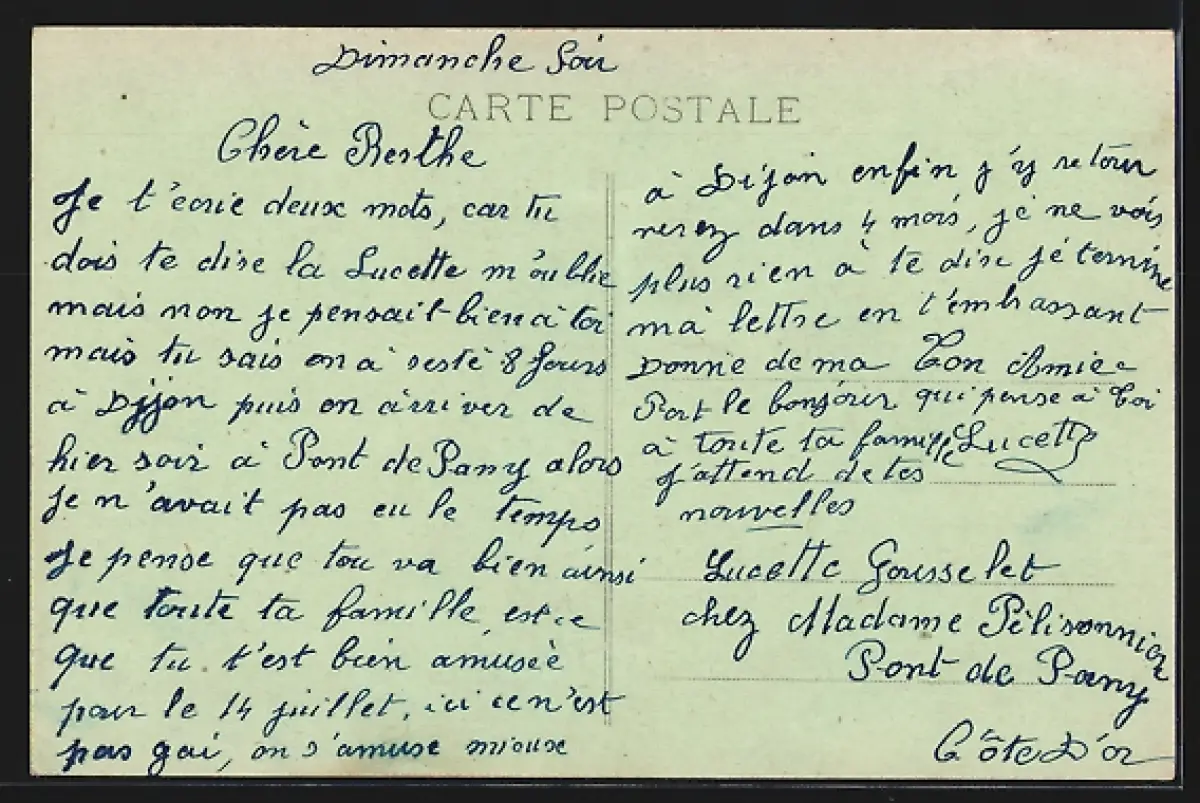 Dimanche Soir
CARTE POSTALE
Chère Berthe
Je t'écrie deux mots, car tu
dois te dire la Lucette m'oublie
mais non je pensait bien à toi
mais tu sais on à resté 8 Jours
à Dijon puis on àrriver de
hier soir à Pont de Pany alors
je n'avait pas eu le temps
Je pense que tou va bien ainsi
que toute ta famille, est ce
que tu t'est bien amuseè
pour le 14 juillet, ici ce n'est
pas gai, on s'amuse mieuse
à Dijon enfin j'y retour
nerez dans 4 mois, je ne vois
plus rien à te dire je termine
mà lettre en t'embrassant
Donne de ma
Ton Amie
Part le bonjour
qui pense à toi
à toute ta famille
Lucette
j'attend de tes
nouvelles
Lucette Gousselet
chez Madame Pèlisonnier
Pont de Pany
Côte D'or